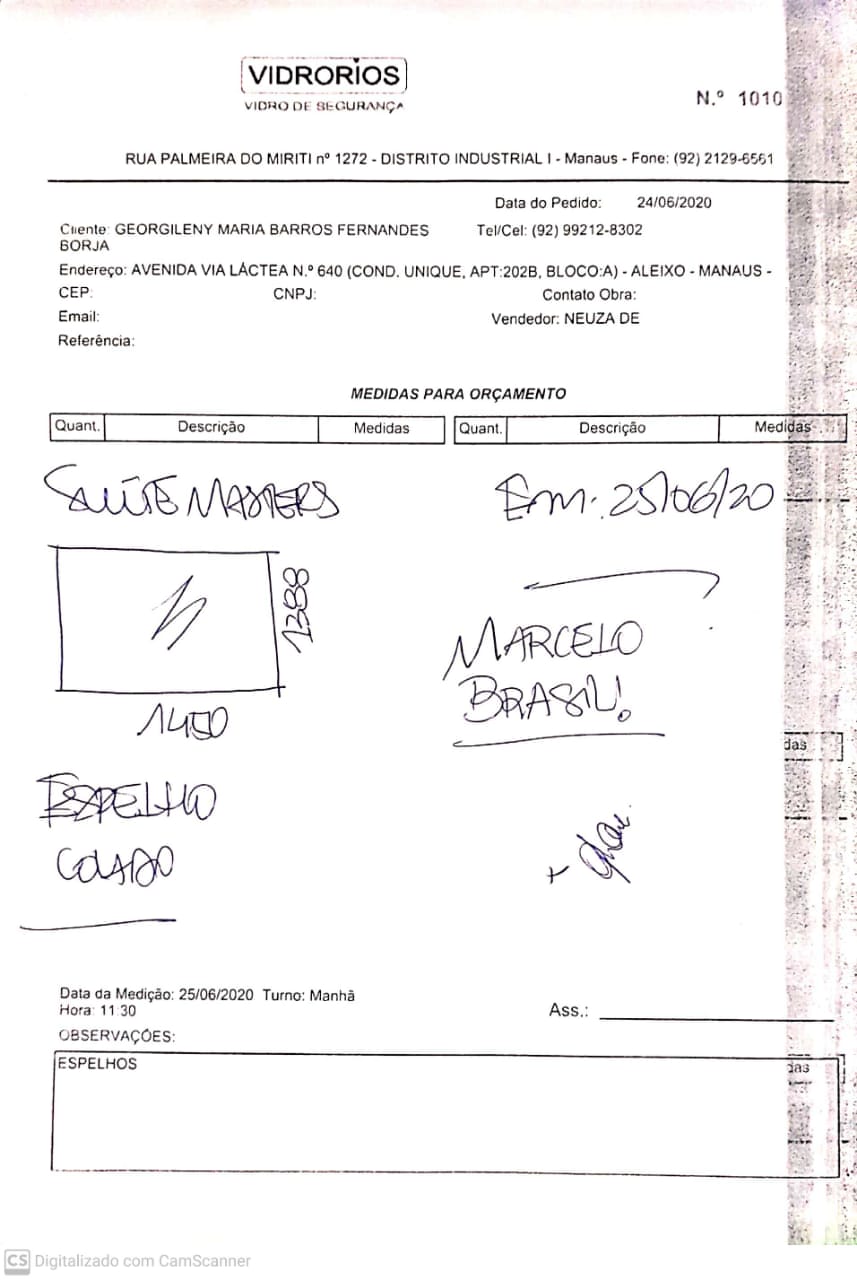 VIDRORIOS
VIDRO DE SEGURANÇA
N.º 1010
RUA PALMEIRA DO MIRITI nº 1272 - DISTRITO INDUSTRIAL I - Manaus - Fone: (92) 2129-6561
Data do Pedido: 24/06/2020
Cliente: GEORGILENY MARIA BARROS FERNANDES BORJA
Tel/Cel: (92) 99212-8302
Endereço: AVENIDA VIA LÁCTEA N.º 640 (COND. UNIQUE, APT:202B, BLOCO:A) - ALEIXO - MANAUS -
CEP: CNPJ: Contato Obra:
Email: Vendedor: NEUZA DE
Referência:
MEDIDAS PARA ORÇAMENTO
Quant. Descrição Medidas Quant. Descrição Medidas
SUÍTE MASTERS
1388
1450
ESPELHO
COLADO
Em: 25/06/20
MARCELO
BRASIL!
das
Data da Medição: 25/06/2020 Turno: Manhã
Hora: 11:30
Ass.:
OBSERVAÇÕES:
ESPELHOS
das
CS Digitalizado com CamScanner